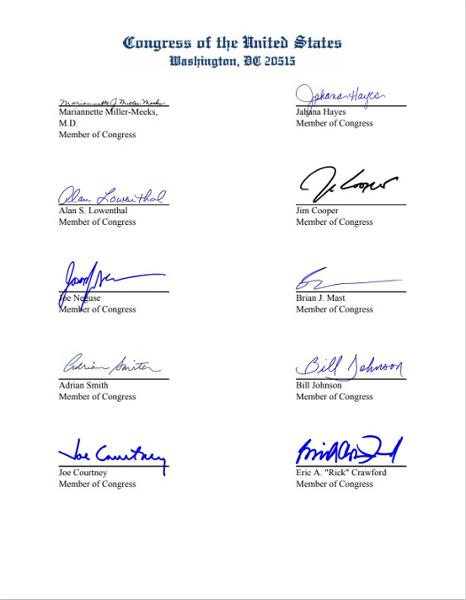 Congress of the United States
Washington, DC 20515
Mariannette J Miller-Meeks
Mariannette Miller-Meeks,
M.D.
Member of Congress
Jahana Hayes
Jahana Hayes
Member of Congress
Alan Lowenthal
Alan S. Lowenthal
Member of Congress
Jim Cooper
Member of Congress
Joe Neguse
Member of Congress
Brian J. Mast
Member of Congress
Adrian Smith
Adrian Smith
Member of Congress
Bill Johnson
Bill Johnson
Member of Congress
Joe Courtney
Joe Courtney
Member of Congress
Eric A. "Rick" Crawford
Member of Congress